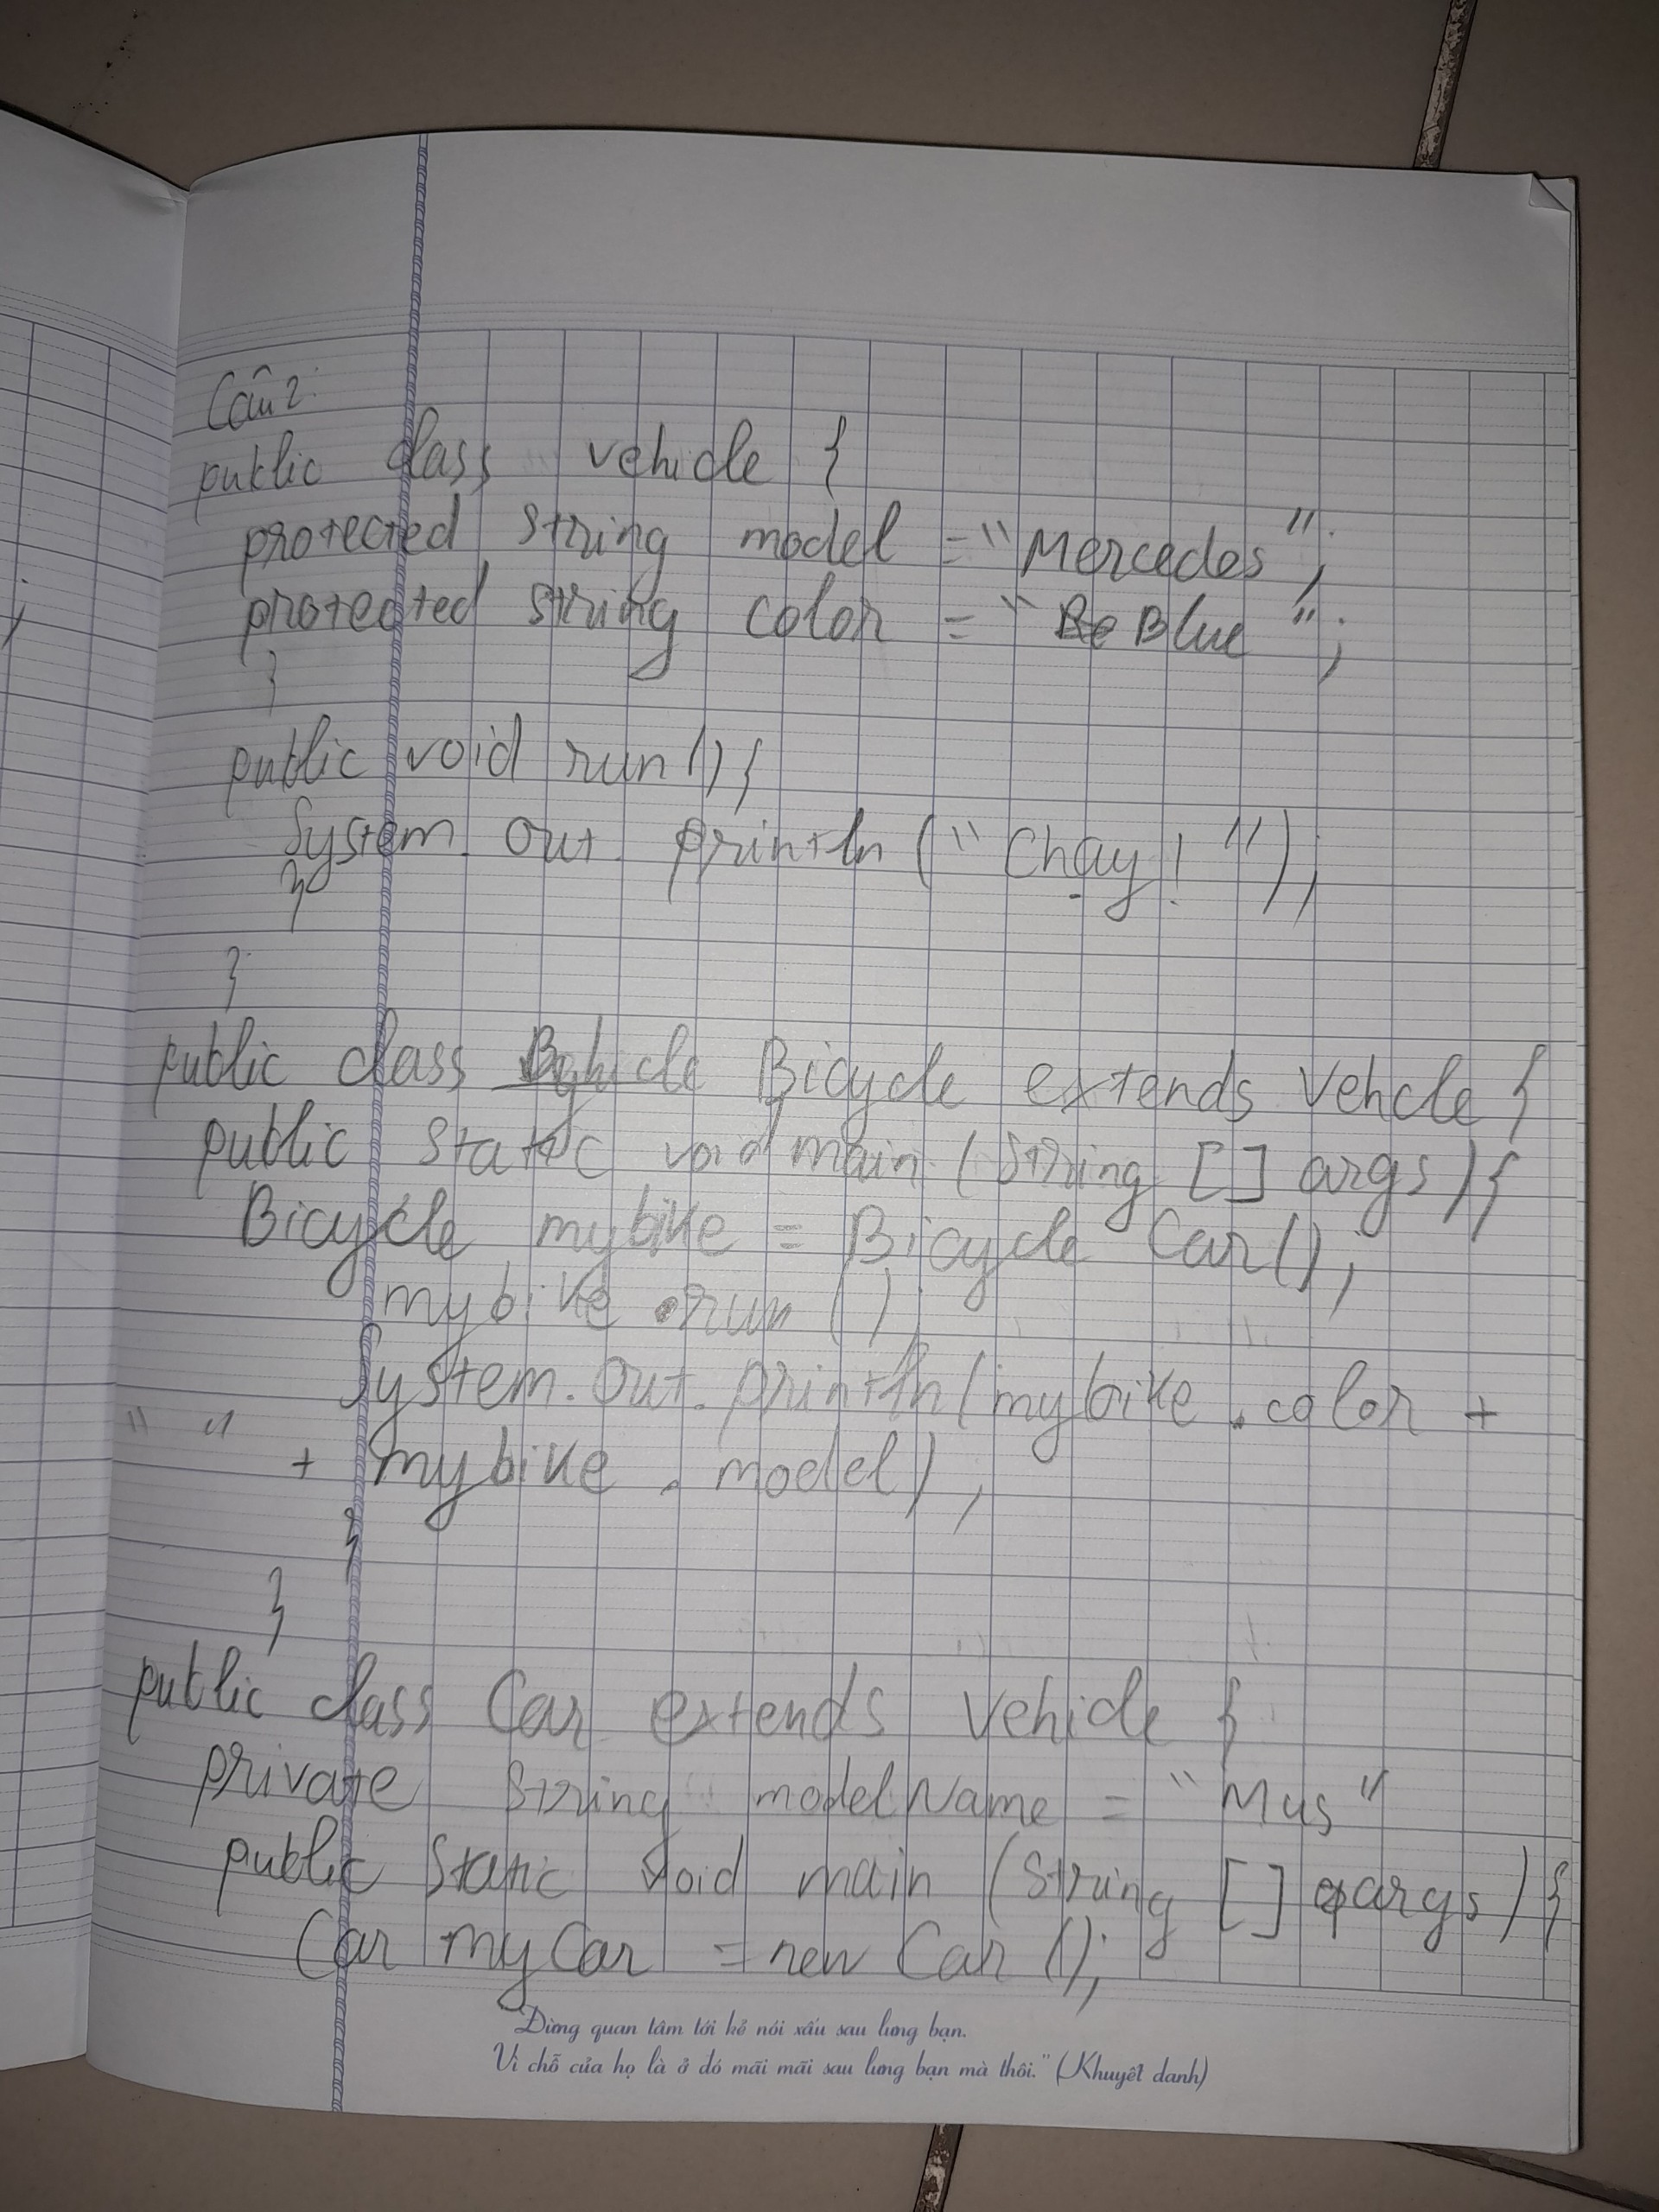 Câu 2:
public class vehicle {
protected string model = "Mercedes";
protected string color = "Blue";
}
public void run() {
System.out.println ("Chạy! ");
}
}
public class Bicycle extends Vehcle {
public static void main (String [] args) {
Bicycle mybike = Bicycle Car();
mybike.run()
System.out.println(mybike.color +
" " + mybike.model);
}
}
public class Car extends Vehicle {
private String modelName = "Mus"
public static void main (String [] args) {
Car myCar = new Car ();
Đừng quan tâm tới kẻ nói xấu sau lưng bạn.
Vì chỗ của họ là ở đó mãi mãi sau lưng bạn mà thôi." (Khuyết danh)